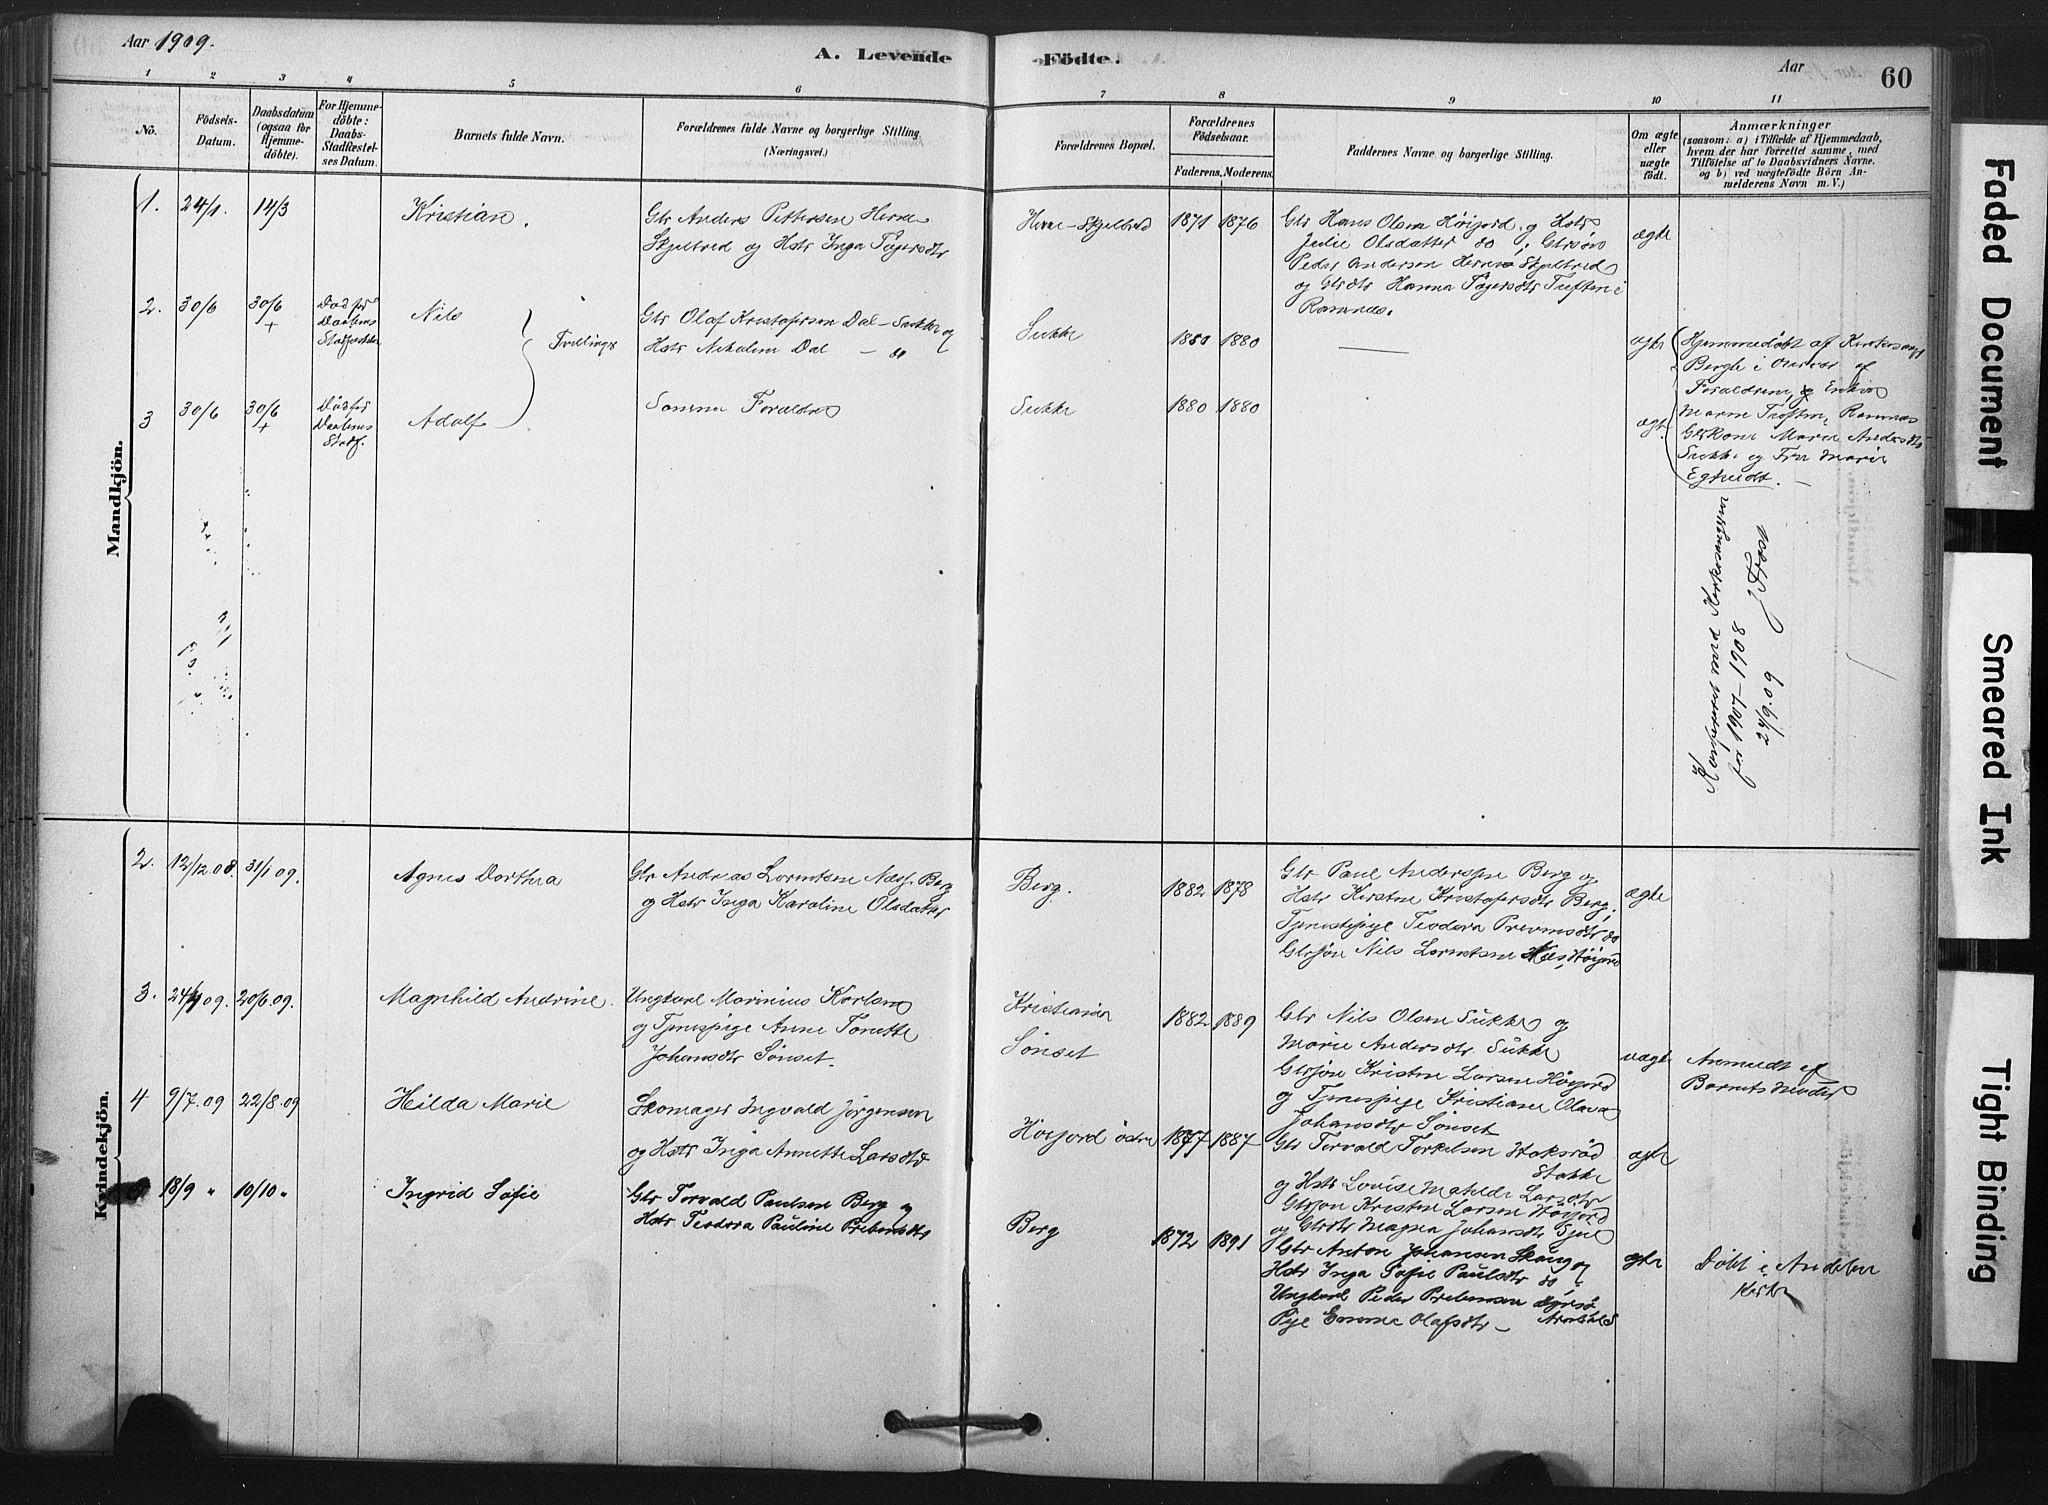 Aar 1909.
A. Levende
Födte.
Aar
60
1
2
3
4
5
6
7
8
9
10
11
No.
Födsels-
Datum.
Daabsdatum
(ogsaa for
Hjemme-
döbte).
For Hjemme-
döbte:
Daabs-
Stadfæstel-
ses Datum.
Barnets fulde Navn.
Forældrenes fulde Navne og borgerlige Stilling.
(Næringsvei.)
Forældrenes Bopæl.
Forældrenes
Födselsaar.
Faderens.
Moderens.
Faddernes Navne og borgerlige Stilling.
Om ægte
eller
uægte
födt.
Anmærkninger
(saasom: a) i Tilfælde af Hjemmedaab,
hvem der har forrettet samme, med
Tilföielse af to Daabsvidners Navne.
og b) ved uægtefödte Börn An-
melderens Navn m. V.)
Mandkjön.
1.
24/1.
14/3
Kristian.
Gbr Anders Pettersen Herre
Skjelbred og Hstr Inga Tøgersdtr
Herre-Skjelbred
1871
1876
Gbr Hans Olsen Høijord og Hstr
Julie Olsdatter do; Gbrsøn
Peder Andersen Herre Skjelbred
og Gbrdtr Hanna Tøgersdtr Tveften i
Ramnæs.
ægte
2.
30/6
30/6
+
Død før
Daabens
Nils
Tvillinger
Gbr Olaf Kristofersen Dal-Sukke og
Hstr Nikoline Dal - do
Sukke
1880
1880
ægte
Hjemmedøbt af Kirkesanger
Bergh i Overvær af
Forældrene, og Enke
Maren Tveften, Ramnæs
Gbrkone Marie Andersdtr
Sukke og Fru Marie
3
30/6
30/6
+
Død før
Daabens
Stadf.
Adolf
Samme Forældre
Sukke
1880
1880
ægte
Konfereret med Kirkesangeren
for 1907-1908
24/9.09
J. Frost
Kvindekjön.
2.
12/12.08.
31/1 09.
Agnes Dorthea
Gbr Andreas Lorentsen Næss. Berg
og Hstr Inga Karoline Olsdatter
Berg.
1882
1878
Gbr Paul Andersen Berg og
Hstr Kirstine Kristofersdtr Berg;
Tjenestepige Teodora Prebensdtr do
Gbrsøn Nils Lorentsen Næs, Høijord
ægte
3.
24/4 09.
20/6.09.
Magnhild Andrine.
Ungkarl Marinius Karlsen
og Tjenepige Anne Tonette
Johansdtr Sønset.
Kristiania
Sønset
1882
1889
Gbr Nils Olsen Sukke og
Marie Andersdtr Sukke
Gbrsøn Kristen Larsen Høijord
og Tjenepige Kristiane Olava
Johansdtr Sønset
uægte
Anmeldt af
Barnets Moder
4
9/7.09
22/8.09
Hilda Marie
Skomager Ingvald Jørgensen
og Hstr Inga Annette Larsdtr
Høijord østre
1877
1887
Gbr Torvald Torkelsen Stoksrød
Stokke
og Hstr Louise Matilde Larsdtr
Gbrsøn Kristen Larsen Høijord
og Gbrdtr Magna Johansdtr Gjul
ægte
18/9 "
10/10 "
Ingrid Sofie
Gbr Torvald Paulsen Berg og
Hstr Teodora Pauline Prebensdtr
Berg
1872
1891
Gbr Anton Johansen Skaug og
Hstr Inga Sofie Paulsdtr do
Ungkarl Peder Prebensen
Pige Emma Olafsdtr -
ægte
Døbt i Andebu
Kirke
Faded Document
Smeared Ink
Tight Binding